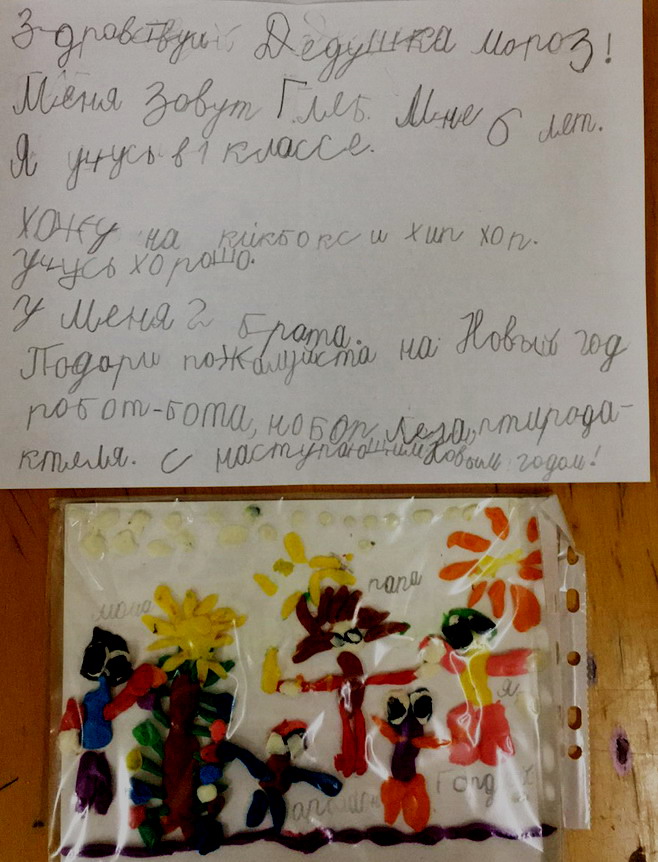 Здравствуй Дедушка мороз!
Меня Зовут Глеб. Мне 6 лет.
Я учусь в 1 классе.
Хожу на кикбокс и хип хоп.
учусь хорошо.
У меня 2 брата.
Подари пожалуйста на Новый год
робот-бота, нобор Лега, птирода-
ктеля. с наступающим Новым годом!
мама
папа
я